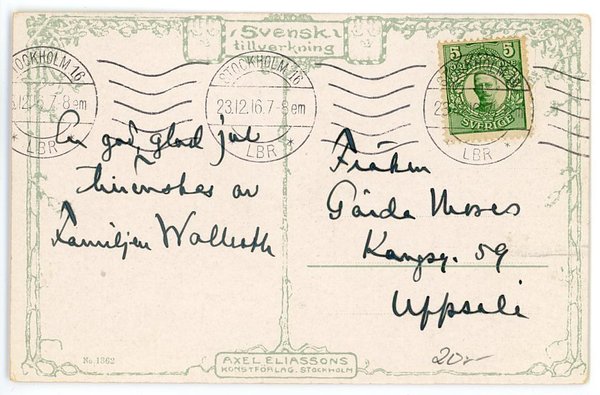 Svensk
tillverkning
STOCKHOLM 16
23.12.16.7-8 em
LBR
STOCKHOLM 16
23.12.16.7-8 em
LBR
STOCKHOLM 16
23
LBR
5 5
SVERIGE
En god glad jul
tillönskas av
Familjen
Fröken
Gärda Moses
Kungsg. 59
Uppsala
No. 1362
AXEL ELIASSONS
KONSTFÖRLAG. STOCKHOLM
20:-